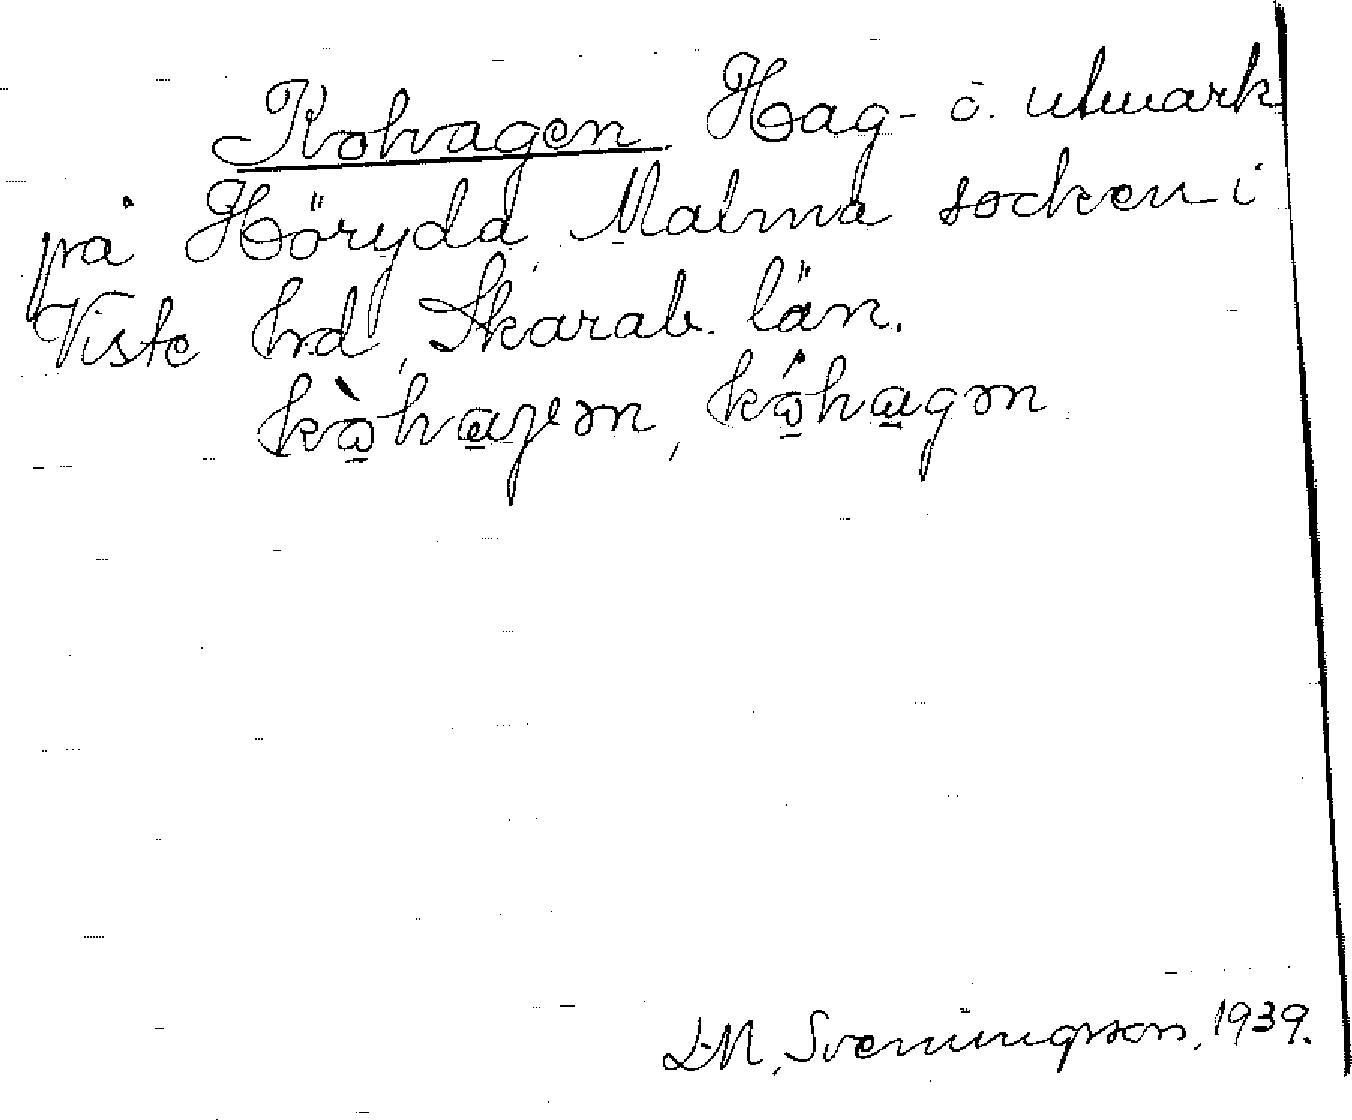 Kohagen. Hag- o. utmark
på Hörydd, Malma socken i
Viste hrd, Skarab. län.
kò̱ha̱gen, kó̱ha̱gən
Svenningsson, 1939.